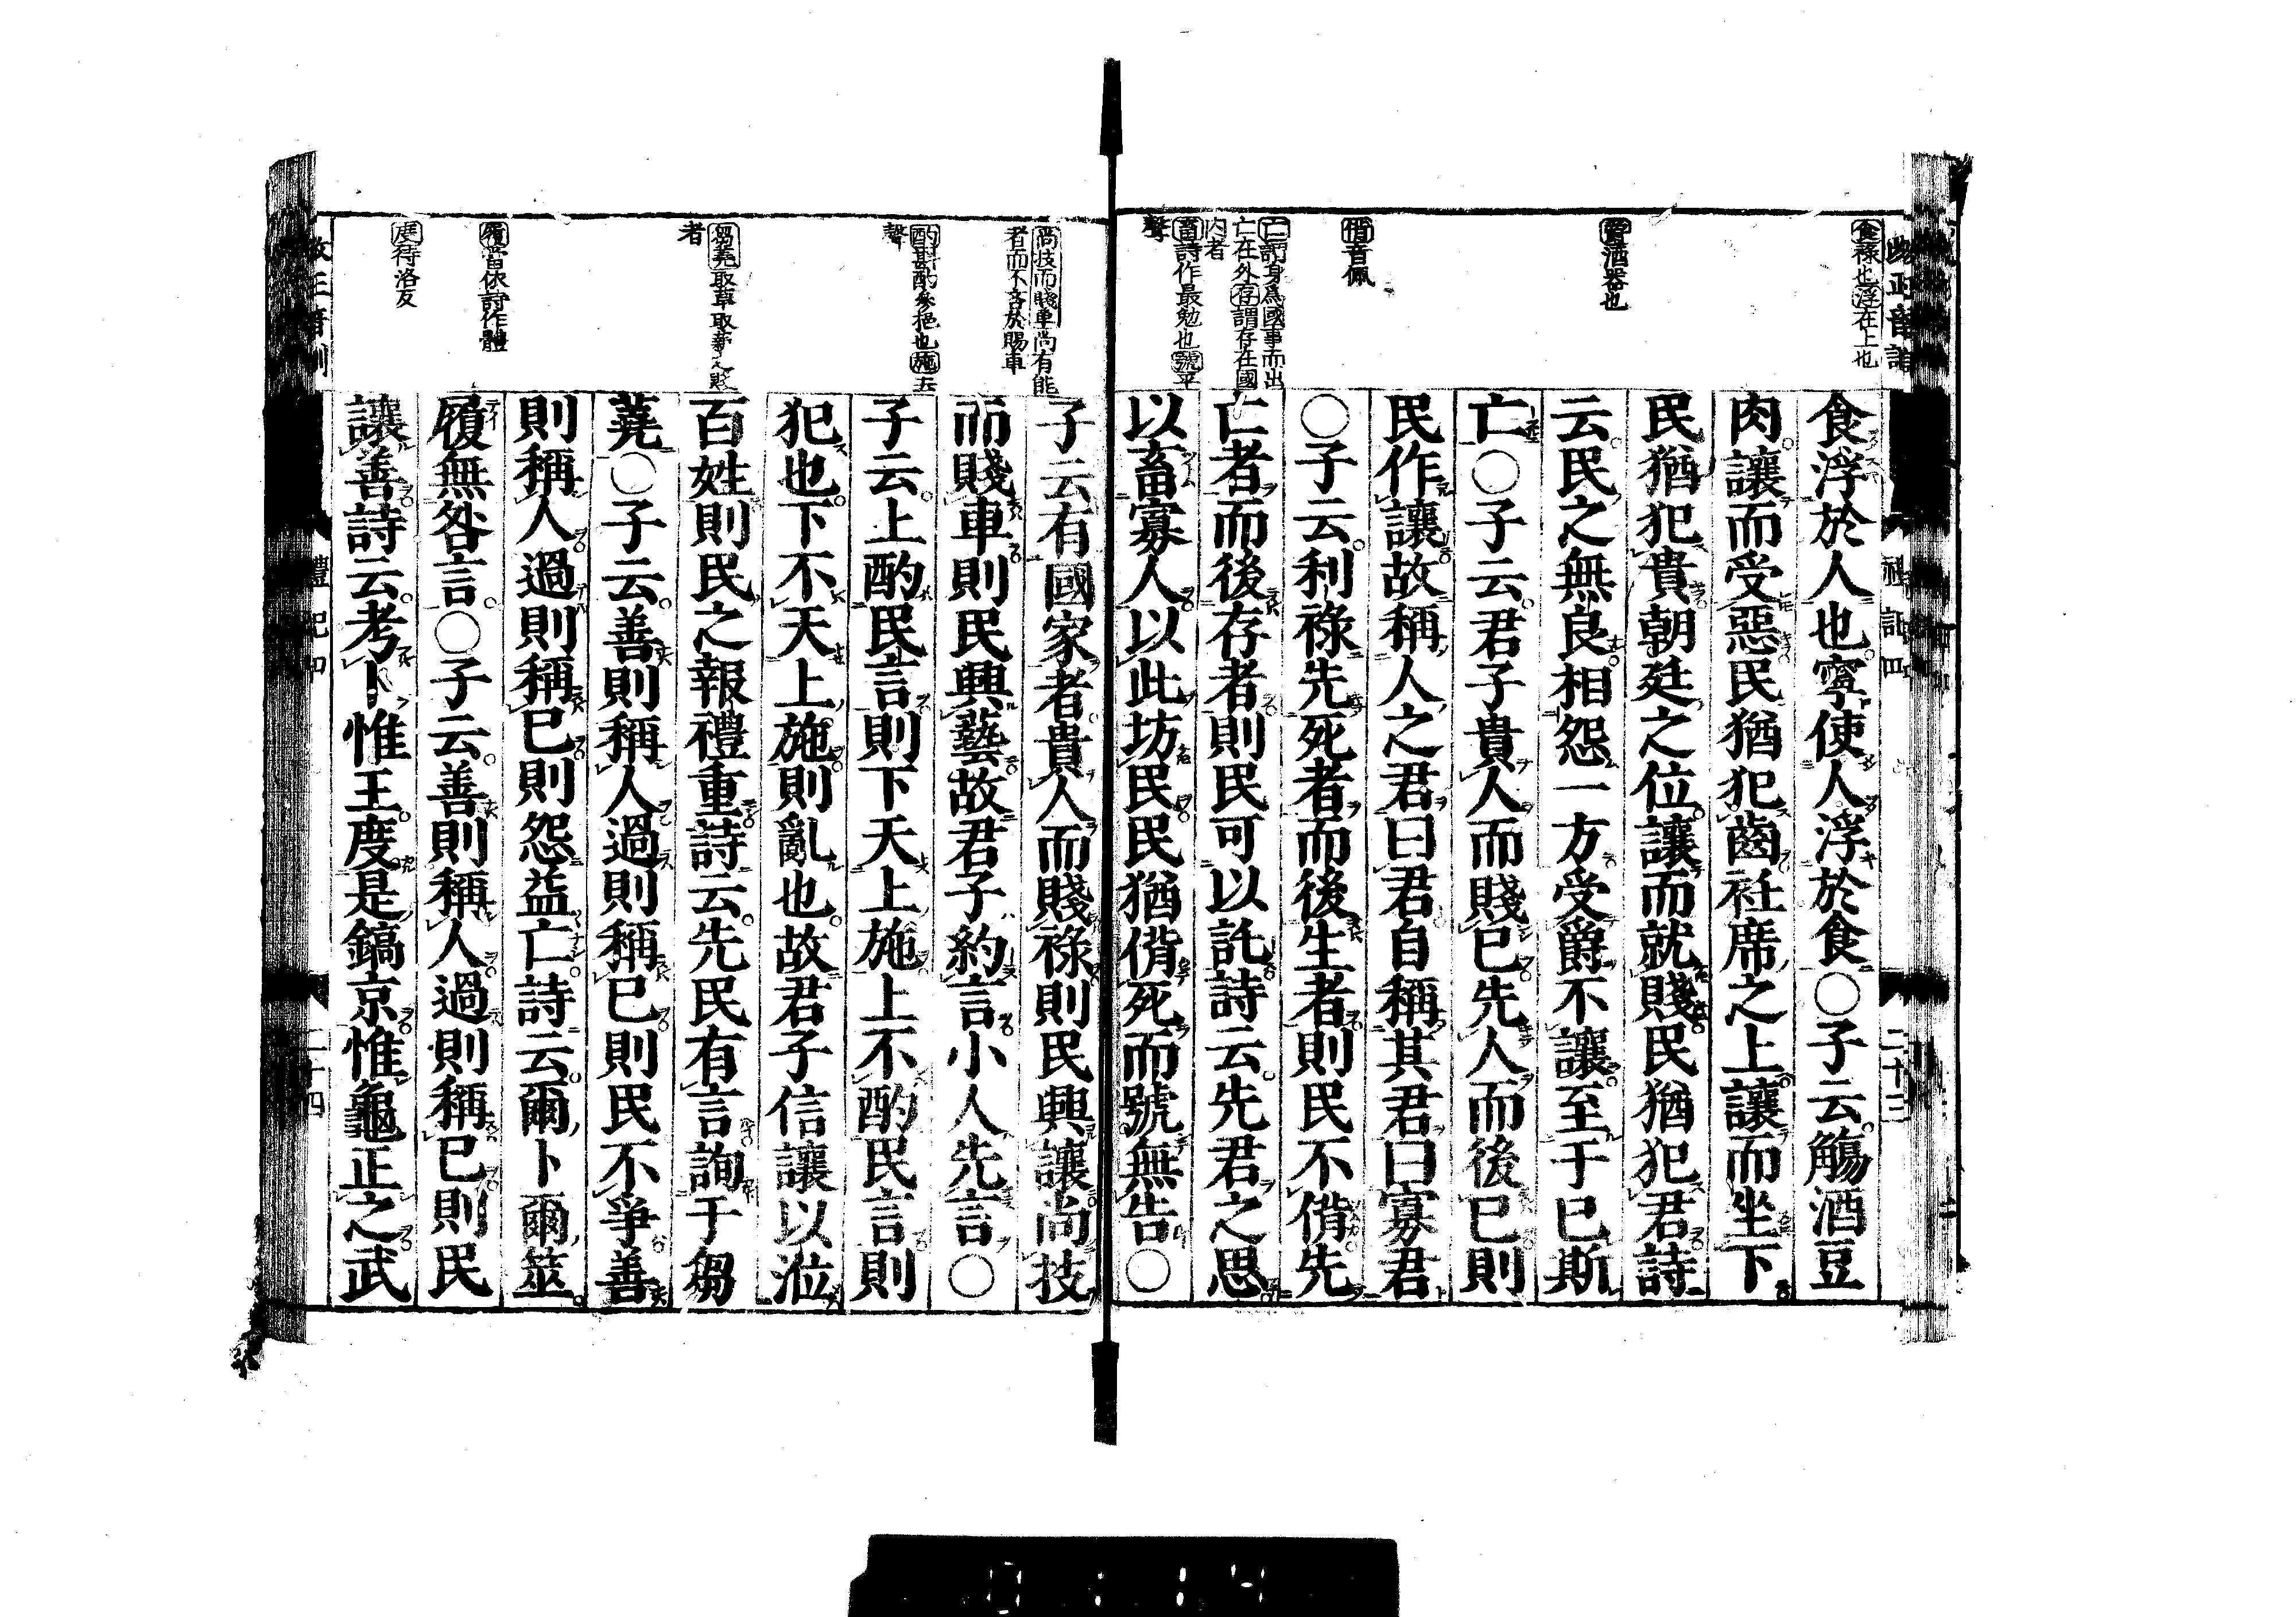 食祿也浮在上也
觴酒器也
偝音佩
亡謂身爲國事而出
亡在外存謂存在國
內者
畜詩作最勉也號平
聲
食浮於人也寧使人浮於食○子云觴酒豆
肉讓而受惡民猶犯齒衽席之上讓而坐下
民猶犯貴朝廷之位讓而就賤民猶犯君詩
云民之無良相怨一方受爵不讓至于已斯
亡○子云君子貴人而賤已先人而後已則
民作讓故稱人之君曰君自稱其君曰寡君
○子云利祿先死者而後生者則民不偝先
亡者而後存者則民可以託詩云先君之思
以畜寡人以此坊民民猶偝死而號無告○
禮記四
二十三
尚技而賤車尚有能
者而不吝於賜車
酌斟酌參挹也施去
聲
芻蕘取草取薪之賤
者
履當依詩作體
度待洛反
子云有國家者貴人而賤祿則民興讓尚技
而賤車則民興藝故君子約言小人先言○
子云上酌民言則下天上施上不酌民言則
犯也下不天上施則亂也故君子信讓以涖
百姓則民之報禮重詩云先民有言詢于芻
蕘○子云善則稱人過則稱已則民不爭善
則稱人過則稱已則怨益亡詩云爾卜爾筮
履無咎言○子云善則稱人過則稱已則民
讓善詩云考卜惟王度是鎬京惟龜正之武
禮記四
二十四